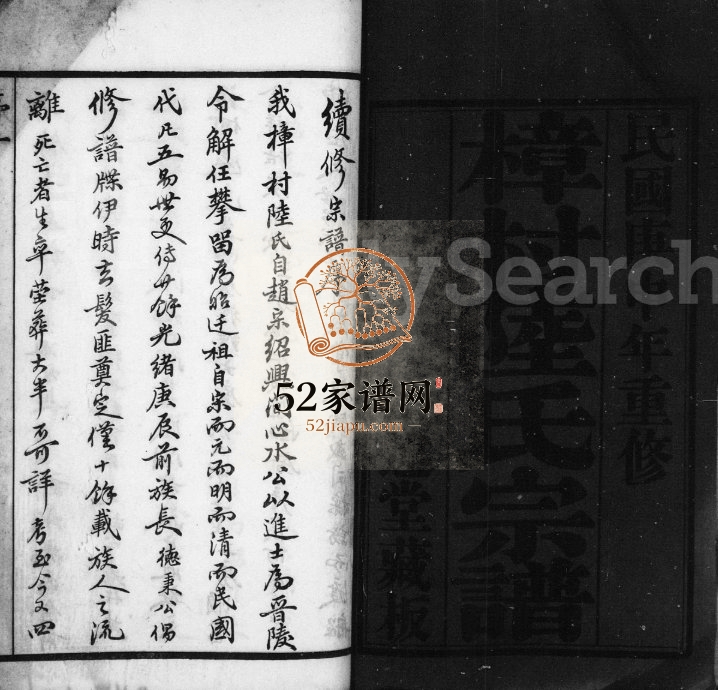 民國庚
年重修
樟村陸氏宗譜
堂藏板
續修宗譜
我樟村陸氏自趙宋紹興
心水公以進士為晉陵
令解任攀留為始迁祖自宋而元而明而清而民國
代凡五易世更侍廿餘光緒庚辰前族長德秉公倡
修譜牒伊時去髮匪奠定僅十餘載族人之流
離死亡者生卒塋葬大半可詳考至今又四
MySearch
52家谱网
52jiapu.com